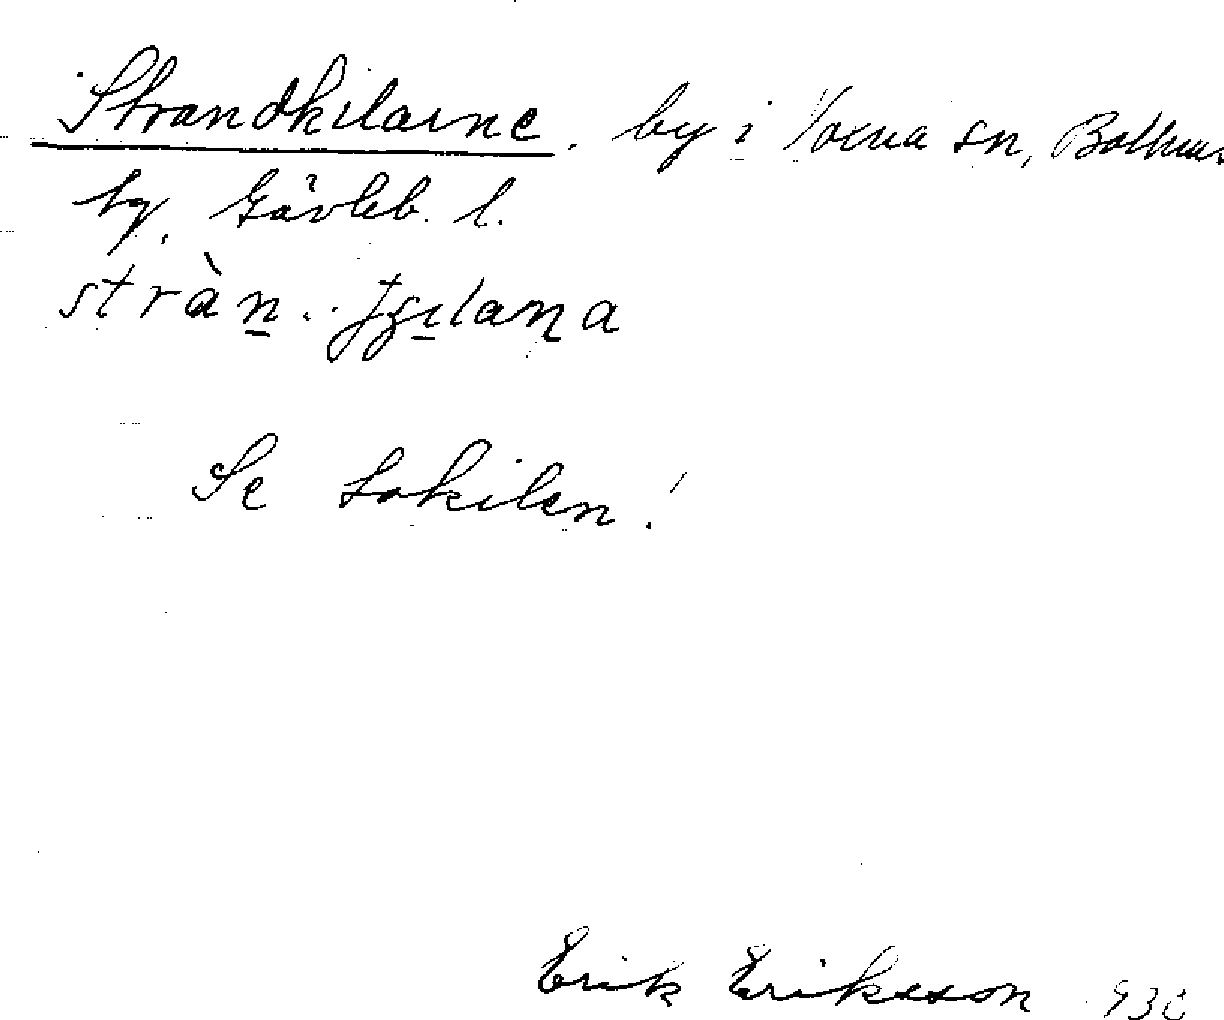 Strandkilarne. by i Voxna sn, Bollnäs
tg, Gävleb. l.
stràn
Se Lokilen!
Erik Eriksson 93